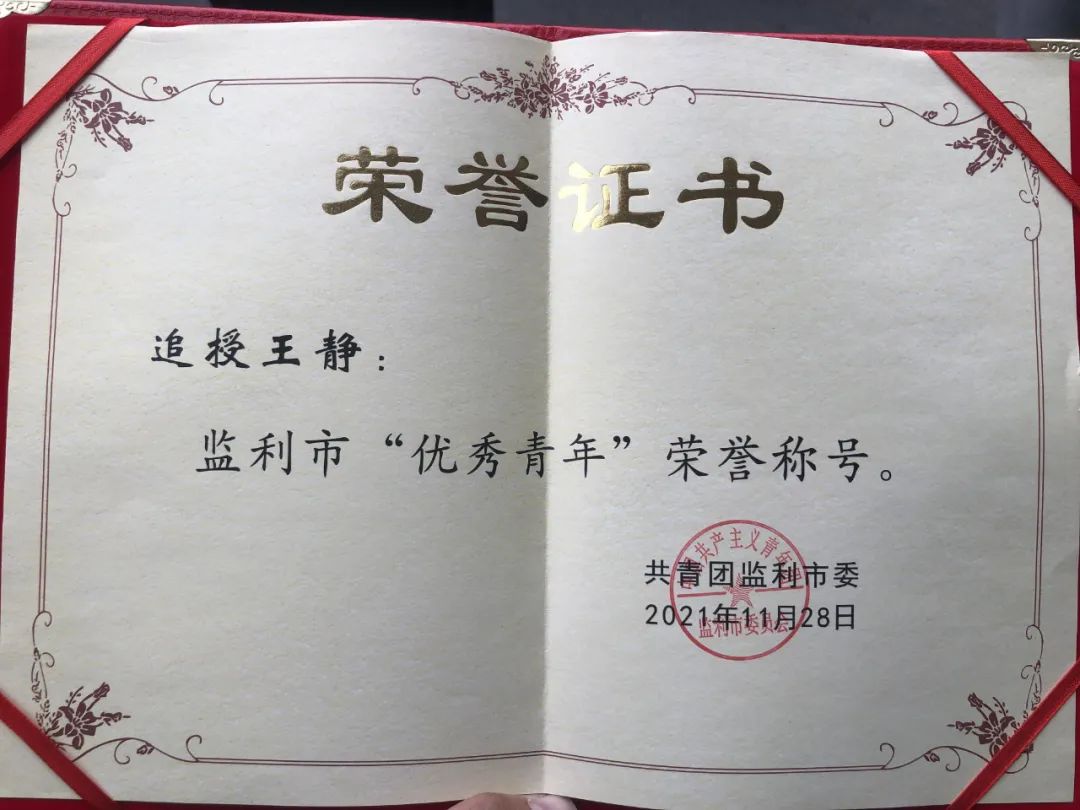 荣誉证书
追授王静：
监利市“优秀青年”荣誉称号。
共青团监利市委
2021年11月28日
中国共产主义青年团
监利市委员会